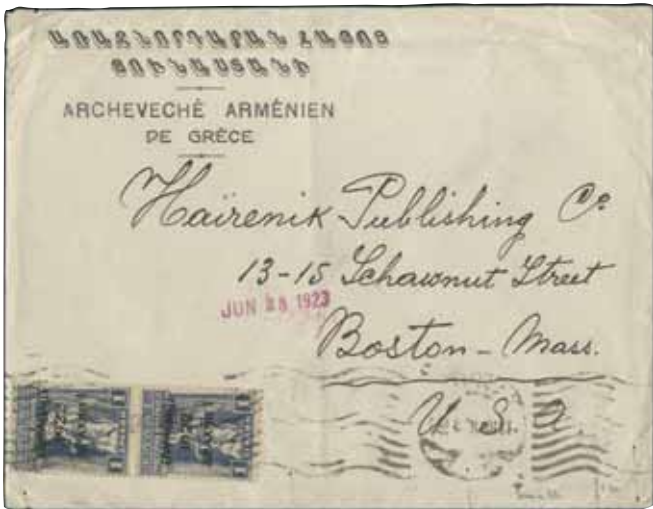 ԱՌԱՋՆՈՐԴԱՐԱՆ ՀԱՅՈՑ
ՅՈՒՆԱՍՏԱՆԻ
ARCHEVECHÉ ARMÉNIEN
DE GRÈCE
Hairenik Publishing Co
13-15 Schawnut Street
JUN 1923
Boston - Mass.
U. S. A.
1 1